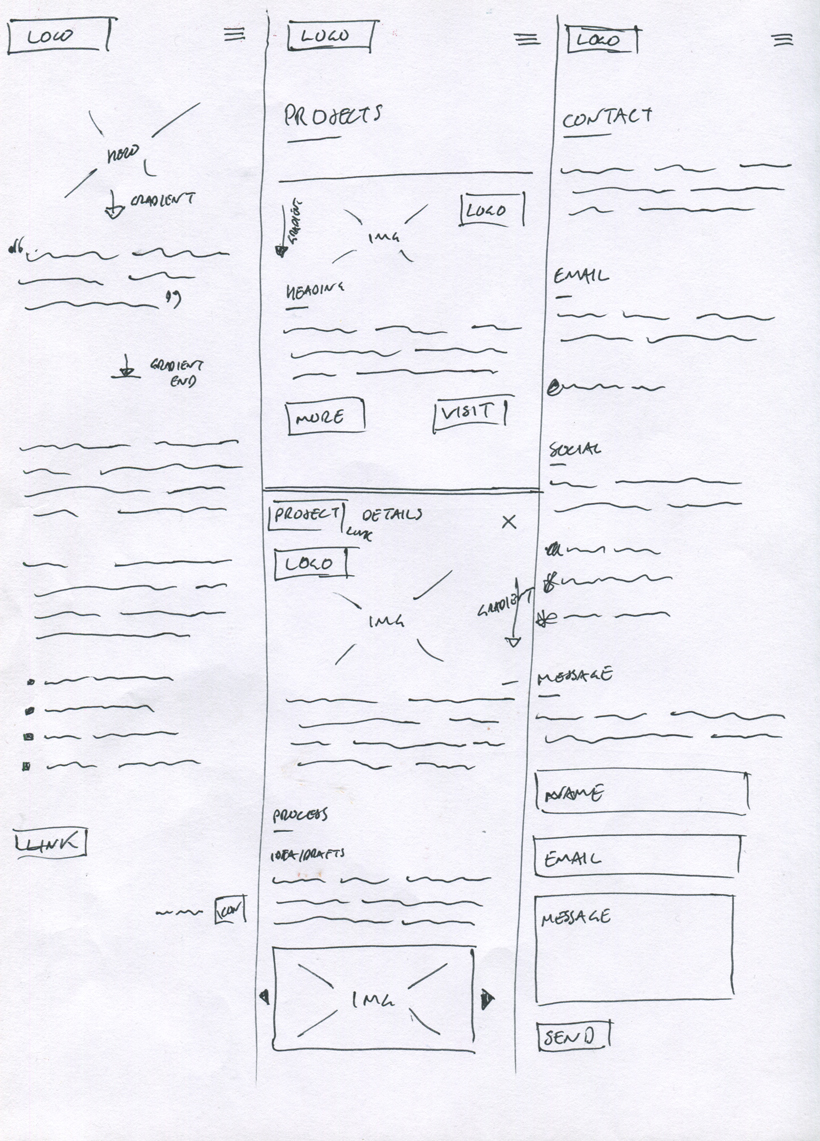 LOGO
HERO
GRADIENT
“
”
GRADIENT
END
LINK
ICON
LOGO
PROJECTS
GRADIENT
IMG
LOGO
HEADING
MORE
VISIT
PROJECT DETAILS
LINK
X
LOGO
IMG
GRADIENT
PROCESS
IDEA/DRAFTS
IMG
LOGO
CONTACT
EMAIL
SOCIAL
MESSAGE
NAME
EMAIL
MESSAGE
SEND